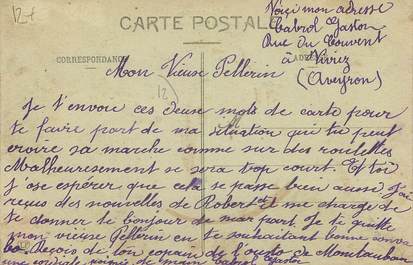 12 f
Voiçi mon adresse
Cabrol Gaston
Rue du Couvent
à Viviez
(Aveyron)
CARTE POSTALE
CORRESPONDANCE
Mon Vieuse Pellérin
12
Je t'envoie ces deuse mots de carte pour
te faire part de ma situation qui tu peut
croire sa marche comme sur des roulettes
Malheuresement se sera trop court. Et toi
j'ose espérer que cela se passe bien aussi j'ai
reçus des nouvelles de Robert et me charge de
te donner le bonjour de mar part. Je te quitte
mon vieuse Pellérin en te souhaitant bonne
Reçois de ton copain de l'auto de Montauban
une poignée de main Cabrol Gaston